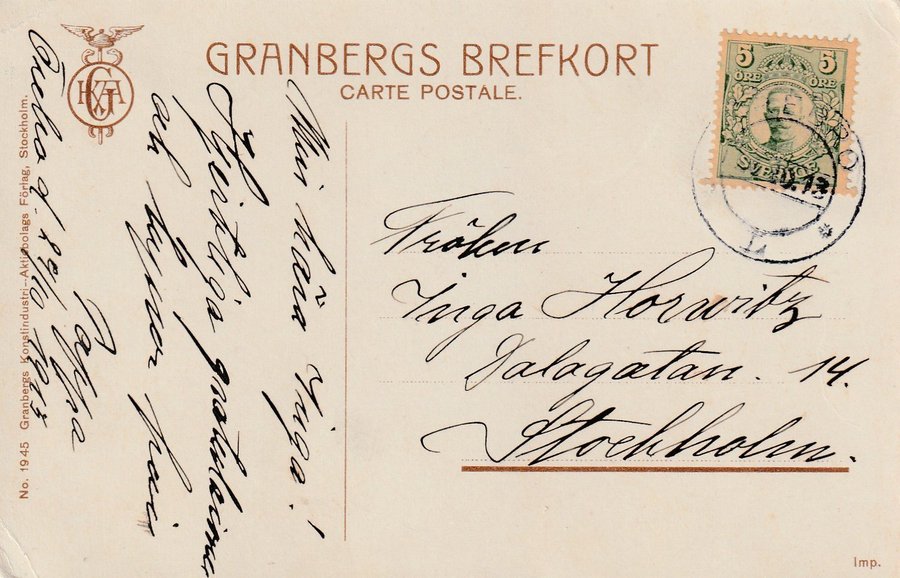 GRANBERGS BREFKORT
CARTE POSTALE.
5 5
ÖRE ÖRE
SVERIGE
Min kära Inga!
Hjertliga gratulationer
och kyssar från
Pappa
Örebro d. 1913
Fröken
Inga Horwitz
Dalagatan. 14.
Stockholm.
No. 1945 Granbergs Konstindustri-Aktiebolags Förlag, Stockholm.
Imp.